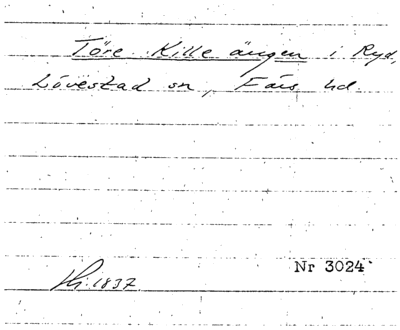 Töre Kille ängen i Ryd,
Lövestad sn, Färs hd.
Nr 3024
1837